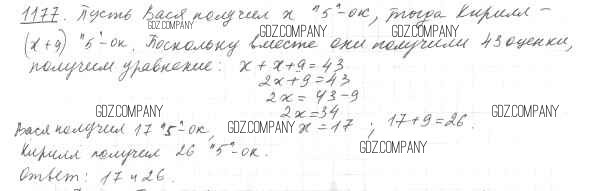 1177. Пусть Вася получил x "5"-ок, тогда Кирилл –
GDZ.COMPANY GDZ.COMPANY GDZ.COMPANY
(x+9) "5"-ок. Поскольку вместе они получили 43 оценки,
получим уравнение: x+x+9=43
2x+9=43
2x=43-9
GDZ.COMPANY 2x=34 GDZ.COMPANY
Вася получил 17 "5"-ок, GDZ.COMPANY x=17 ; 17+9=26.
Кирилл получил 26 "5"-ок. GDZ.COMPANY
Ответ: 17 и 26.